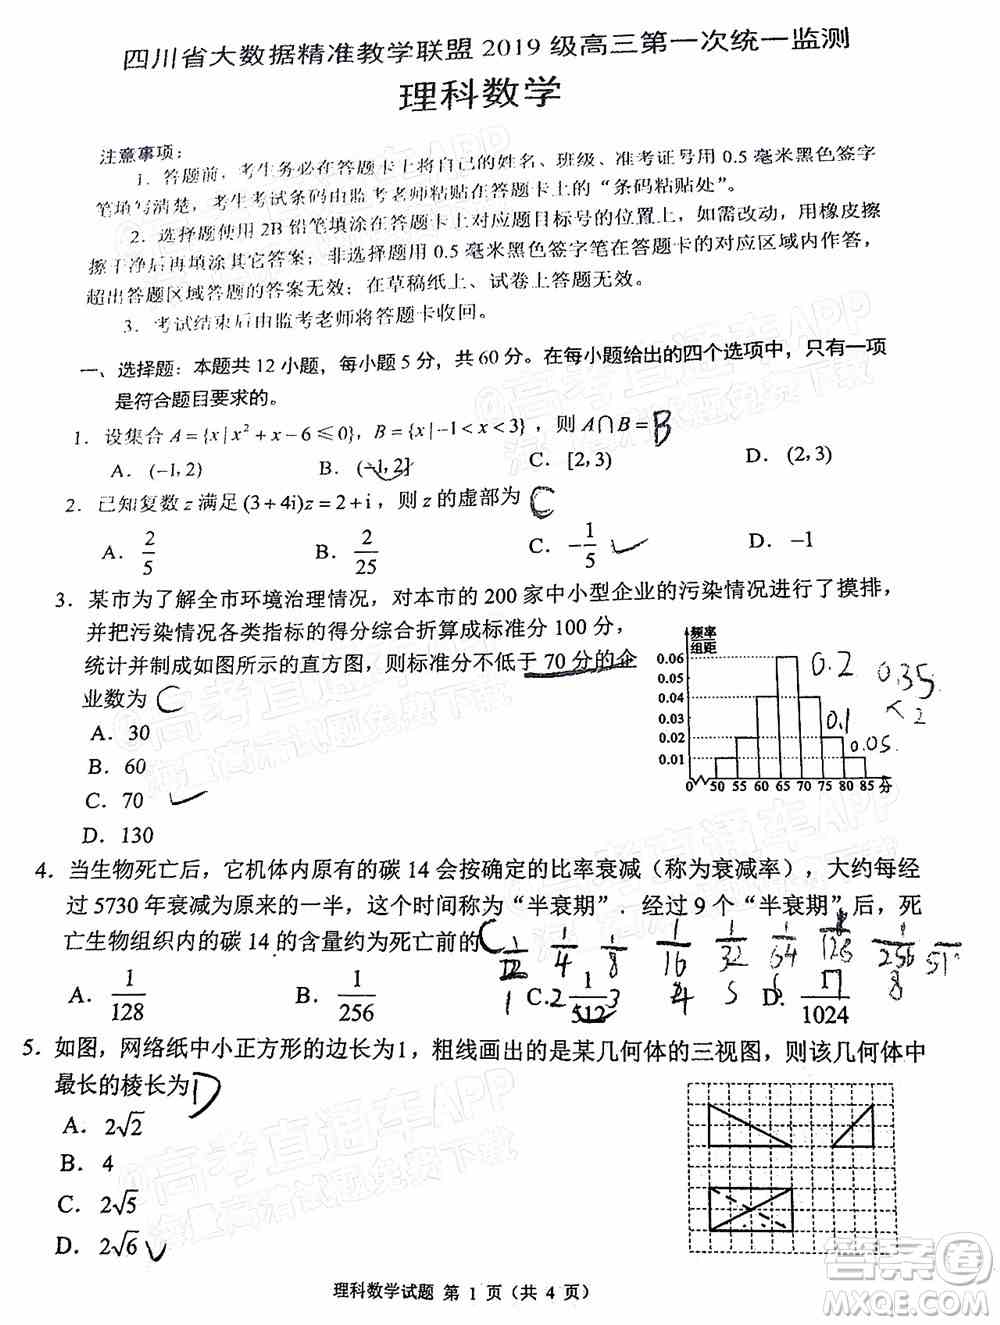 四川省大数据精准教学联盟 2019 级高三第一次统一监测
理科数学
注意事项：
1．答题前，考生务必在答题卡上将自己的姓名、班级、准考证号用 0.5 毫米黑色签字
笔填写清楚，考生考试条码由监考老师粘贴在答题卡上的“条码粘贴处”。
2．选择题使用 2B 铅笔填涂在答题卡上对应题目标号的位置上，如需改动，用橡皮擦
擦干净后再填涂其它答案；非选择题用 0.5 毫米黑色签字笔在答题卡的对应区域内作答，
超出答题区域答题的答案无效；在草稿纸上、试卷上答题无效。
3．考试结束后由监考老师将答题卡收回。
一、选择题：本题共 12 小题，每小题 5 分，共 60 分。在每小题给出的四个选项中，只有一项
是符合题目要求的。
1．设集合 A={x|x²+x-6≤0}，B={x|-1<x<3}，则 A∩B= B
A．(-1,2) B．(-1,2] C．[2,3) D．(2,3)
2．已知复数 z 满足 (3+4i)z=2+i，则 z 的虚部为 C
A．2/5 B．2/25 C．-1/5 D．-1
3．某市为了解全市环境治理情况，对本市的 200 家中小型企业的污染情况进行了摸排，
并把污染情况各类指标的得分综合折算成标准分 100 分，
统计并制成如图所示的直方图，则标准分不低于 70 分的企
业数为 C
A．30
B．60
C．70
D．130
频率
组距
0.06
0.05
0.04
0.03
0.02
0.01
0 50 55 60 65 70 75 80 85 分
0.2 0.35
0.1
0.05
4．当生物死亡后，它机体内原有的碳 14 会按确定的比率衰减（称为衰减率），大约每经
过 5730 年衰减为原来的一半，这个时间称为“半衰期”．经过 9 个“半衰期”后，死
亡生物组织内的碳 14 的含量约为死亡前的 C
1/4 1/8 1/16 1/32 1/64 1/128 1/256
A．1/128 B．1/256 C．1/512 D．1/1024
1 2 3 4 5 6 7 8
5．如图，网络纸中小正方形的边长为1，粗线画出的是某几何体的三视图，则该几何体中
最长的棱长为 D
A．2√2
B．4
C．2√5
D．2√6
理科数学试题 第 1 页（共 4 页）
答案圈
MXQE.COM